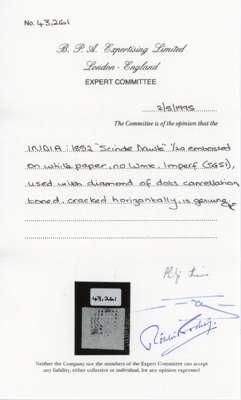 No. 43,261
B. P. A. Expertising Limited
London - England
EXPERT COMMITTEE
2/5/1995
The Committee is of the opinion that the
INDIA: 1852 "Scinde Dawk" ½a embossed
on white paper, no wmk, imperf (SGS1),
used with diamond of dots cancellation
toned, cracked horizontally, is genuine
43,261
Neither the Company nor the members of the Expert Committee can accept
any liability, either collective or individual, for any opinion expressed